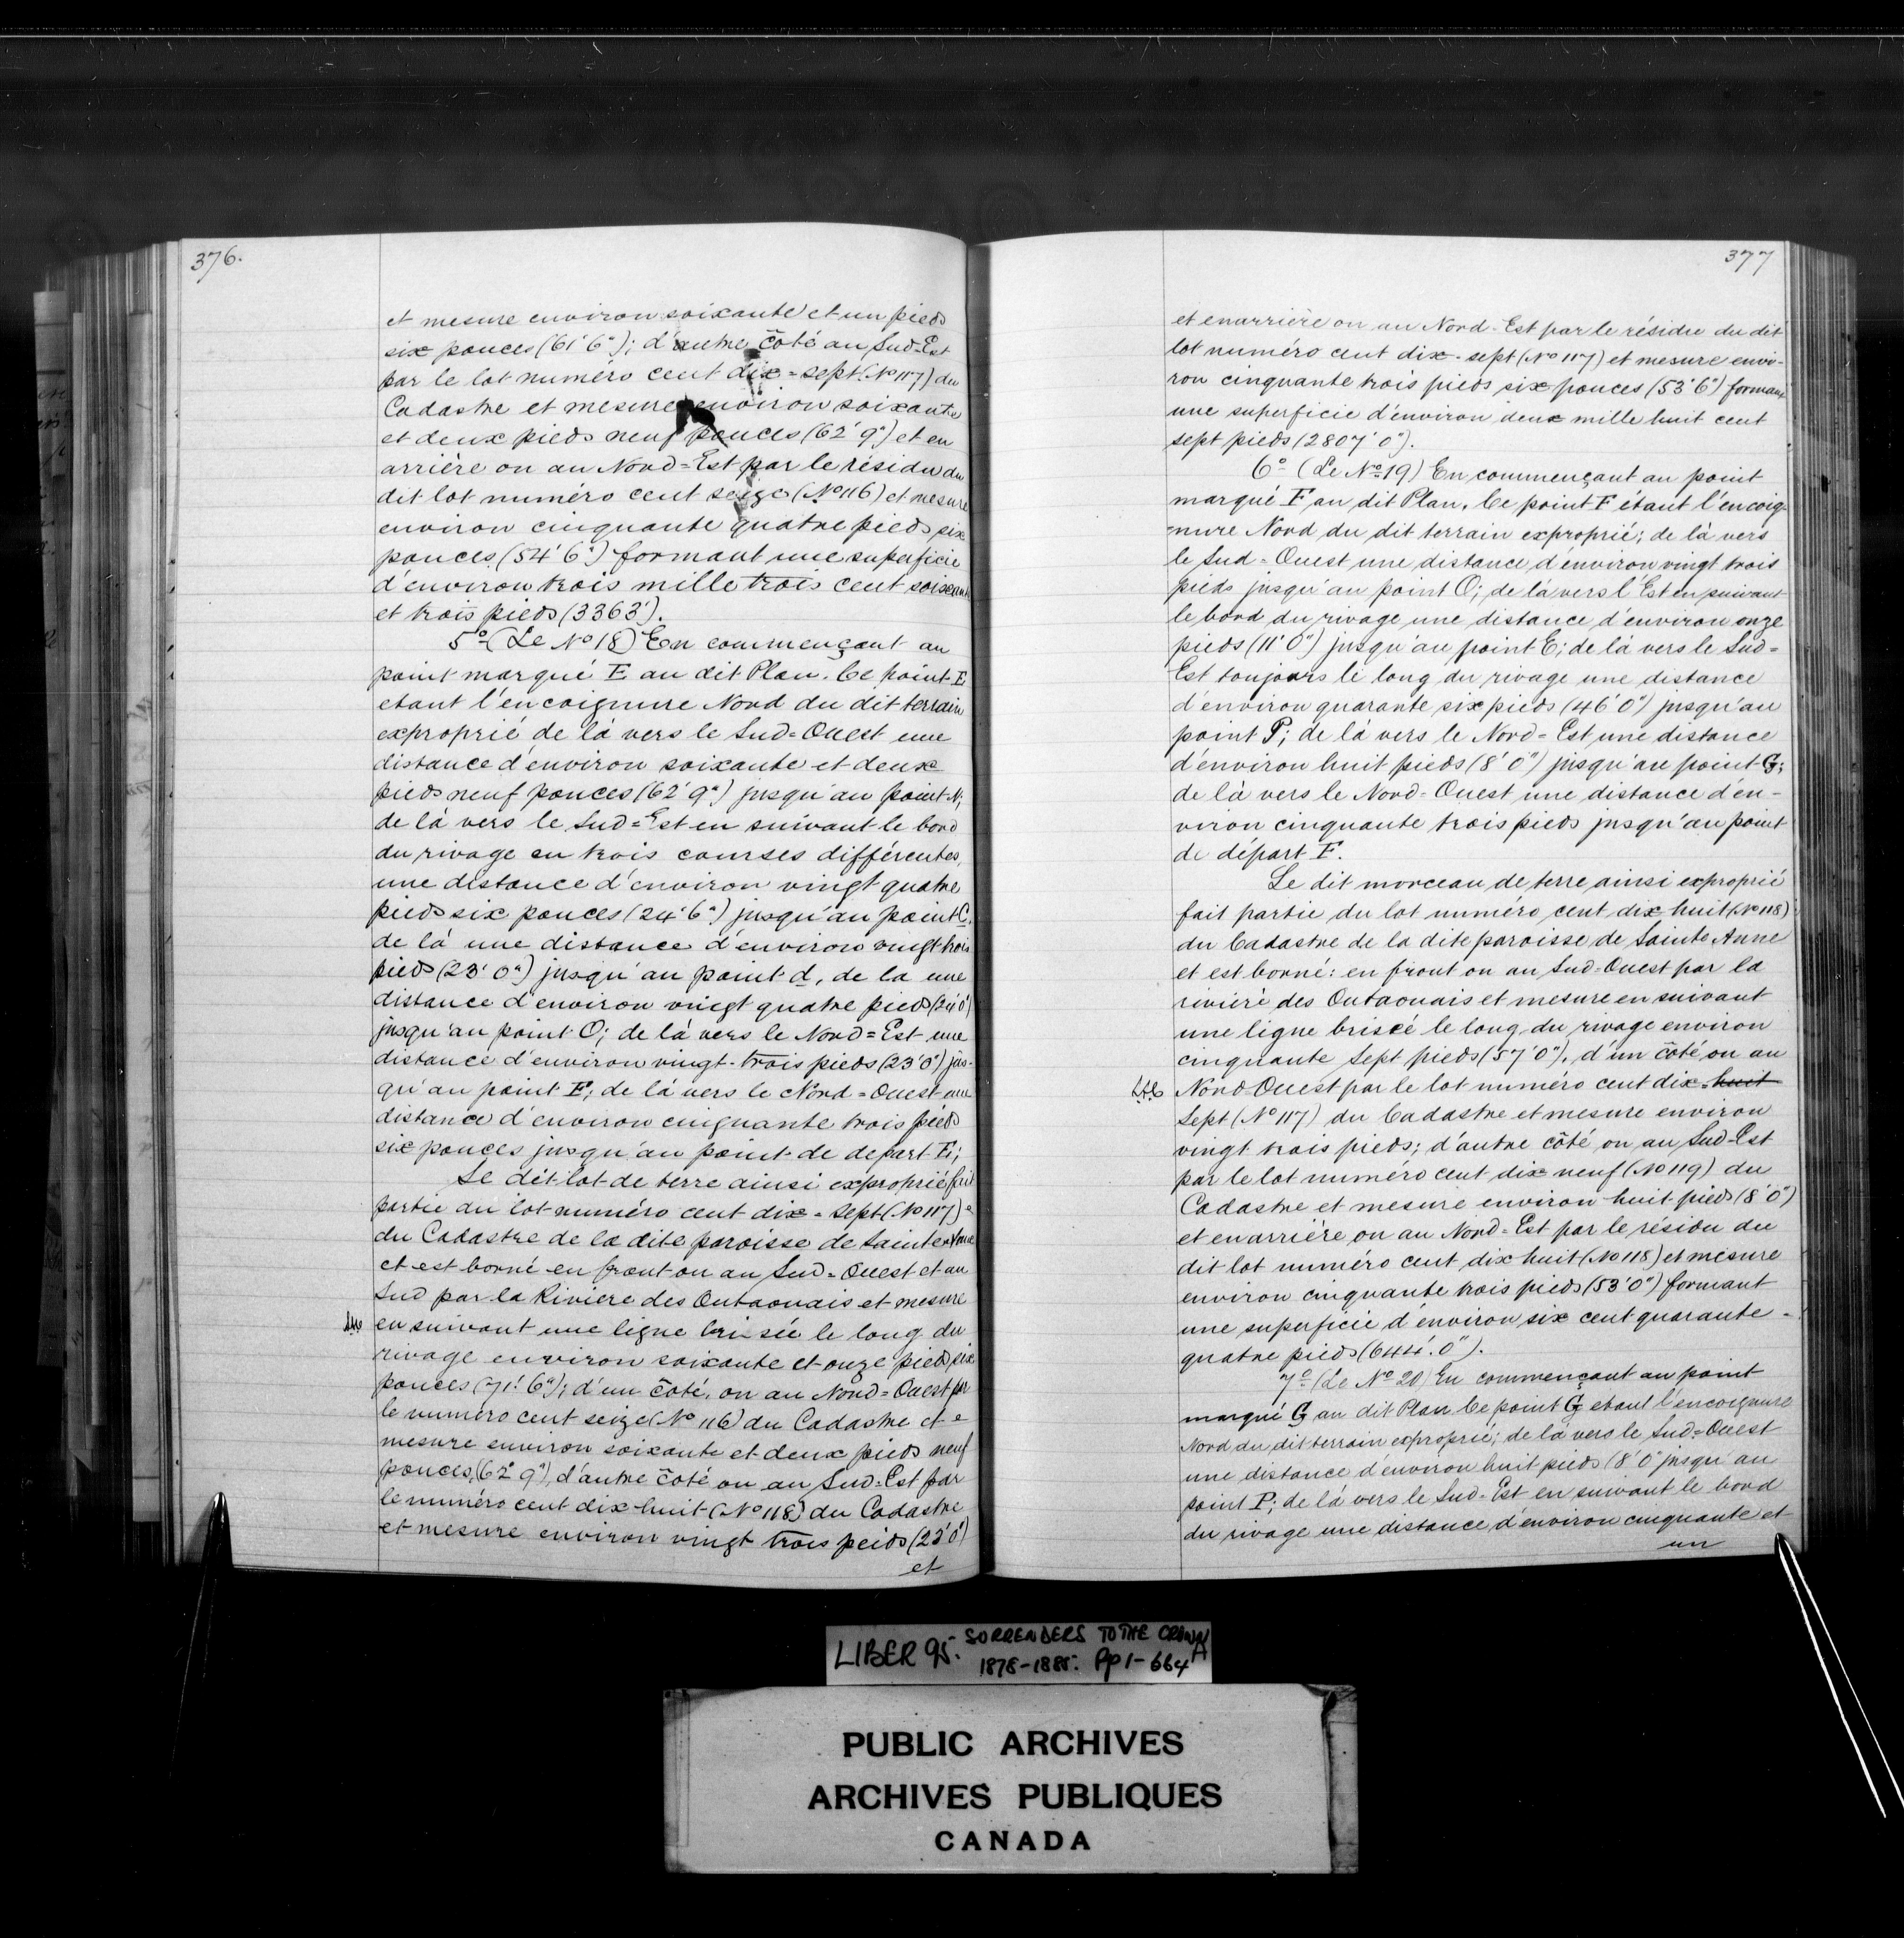 376.
et mesure environ soixante et un pieds
six pouces (61'6"); d'autre côté au Sud=Est
par le lot numéro cent dix=sept (No 117) du
Cadastre et mesure environ soixante
et deux pieds neuf pouces (62'9") et en
arrière ou au Nord=Est par le résidu du
dit lot numéro cent seize (No 116) et mesure
environ cinquante quatre pieds six
pouces (54'6") formant une superficie
d'environ trois mille trois cent soixante
et trois pieds (3363').
5o (Le No 18) En commençant au
point marqué E au dit Plan. Ce point E
etant l'encoignure Nord du dit terrain
exproprié de là vers le Sud=Ouest une
distance d'environ soixante et deux
pieds neuf pouces (62'9") jusqu'au point N;
de là vers le Sud=Est en suivant le bord
du rivage en trois courses différentes,
une distance d'environ vingt quatre
pieds six pouces (24'6") jusqu'au point C,
de là une distance d'environ vingt trois
pieds (23'0") jusqu'au point d, de la une
distance d'environ vingt quatre pieds (24'0")
jusqu'au point O; de là vers le Nord=Est une
distance d'environ vingt-trois pieds (23'0") jus-
qu'au point F; de là vers le Nord=Ouest une
distance d'environ cinquante trois pieds
six pouces jusqu'au point de depart E;
Le dit lot de terre ainsi exproprié fait
partie du lot numéro cent dix=sept (No 117)
du Cadastre de la dite paroisse de Sainte Anne
et est borné en front ou au Sud=Ouest et au
Sud par la Riviere des Outaouais et mesure
en suivant une ligne brisée le long du
rivage environ soixante et onze pieds six
pouces (71'6"); d'un côté, ou au Nord=Ouest par
le numéro cent seize (No 116) du Cadastre et
mesure environ soixante et deux pieds neuf
pouces, (62'9"), d'autre côté ou au Sud=Est par
le numéro cent dix-huit (No 118) du Cadastre
et mesure environ vingt trois peids (23'0")
et
377
et en arrière ou au Nord-Est par le résidu du dit
lot numéro cent dix-sept (No 117) et mesure envi-
ron cinquante trois pieds six pouces (53'6") formant
une superficie d'environ deux mille huit cent
sept pieds (2807'0").
6o (Le No 19) En commençant au point
marqué F au dit Plan. Ce point F étant l'encoig-
nure Nord du dit terrain exproprié; de là vers
le Sud=Ouest une distance d'environ vingt trois
pieds jusqu'au point O; de là vers l'Est en suivant
le bord du rivage une distance d'environ onze
pieds (11'0") jusqu'au point E; de là vers le Sud=
Est toujours le long du rivage une distance
d'environ quarante six pieds (46'0") jusqu'au
point P; de là vers le Nord=Est une distance
d'environ huit pieds (8'0") jusqu'au point G;
de là vers le Nord=Ouest une distance d'en-
viron cinquante trois pieds jusqu'au point
de départ F.
Le dit morceau de terre ainsi exproprié
fait partie du lot numéro cent dix huit (No 118)
du Cadastre de la dite paroisse de Sainte Anne
et est borné: en front ou au Sud=Ouest par la
rivière des Outaouais et mesure en suivant
une ligne brisée le long du rivage environ
cinquante sept pieds (57'0"), d'un côté ou au
Nord-Ouest par le lot numéro cent dix-huit
Sept (No 117) du Cadastre et mesure environ
vingt trois pieds; d'autre côté ou au Sud-Est
par le lot numéro cent dix neuf (No 119) du
Cadastre et mesure environ huit pieds (8'0")
et en arrière ou au Nord=Est par le résidu du
dit lot numéro cent dix huit (No 118) et mesure
environ cinquante trois pieds (53'0") formant
une superficie d'environ six cent quarante-
quatre pieds (644'.0").
7o (Le No 20) En commençant au point
marqué G au dit Plan. Ce point G etant l'encoignure
Nord du dit terrain exproprié; de là vers le Sud=Ouest
une distance d'environ huit pieds (8'0" jusqu'au
point P; de là vers le Sud-Est en suivant le bord
du rivage une distance d'environ cinquante et
un
LIBER 95. SURRENDERS TO THE CROWN
1878-1885. Pp 1-664A
PUBLIC ARCHIVES
ARCHIVES PUBLIQUES
CANADA